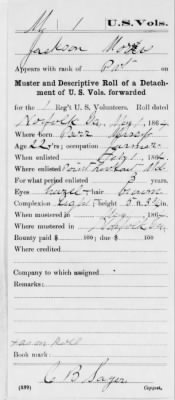 M 1 U.S. Vols.
Jackson
Appears with rank of Pvt on
Muster and Descriptive Roll of a Detach-
ment of U. S. Vols. forwarded
for the 1 Reg't U. S. Volunteers. Roll dated
Norfolk Va 186
Where born
Age 22 y'rs; occupation Farmer
When enlisted 186
Where enlisted Point Lookout Md
For what period enlisted 3 years.
Eyes hazel; hair brown
Complexion light; height 5 ft. in.
When mustered in 186
Where mustered in Norfolk Va
Bounty paid $ 100; due $ 100
Where credited
Company to which assigned
Remarks:
as on Roll
Book mark:
C B Sayer
(339) Copyist.